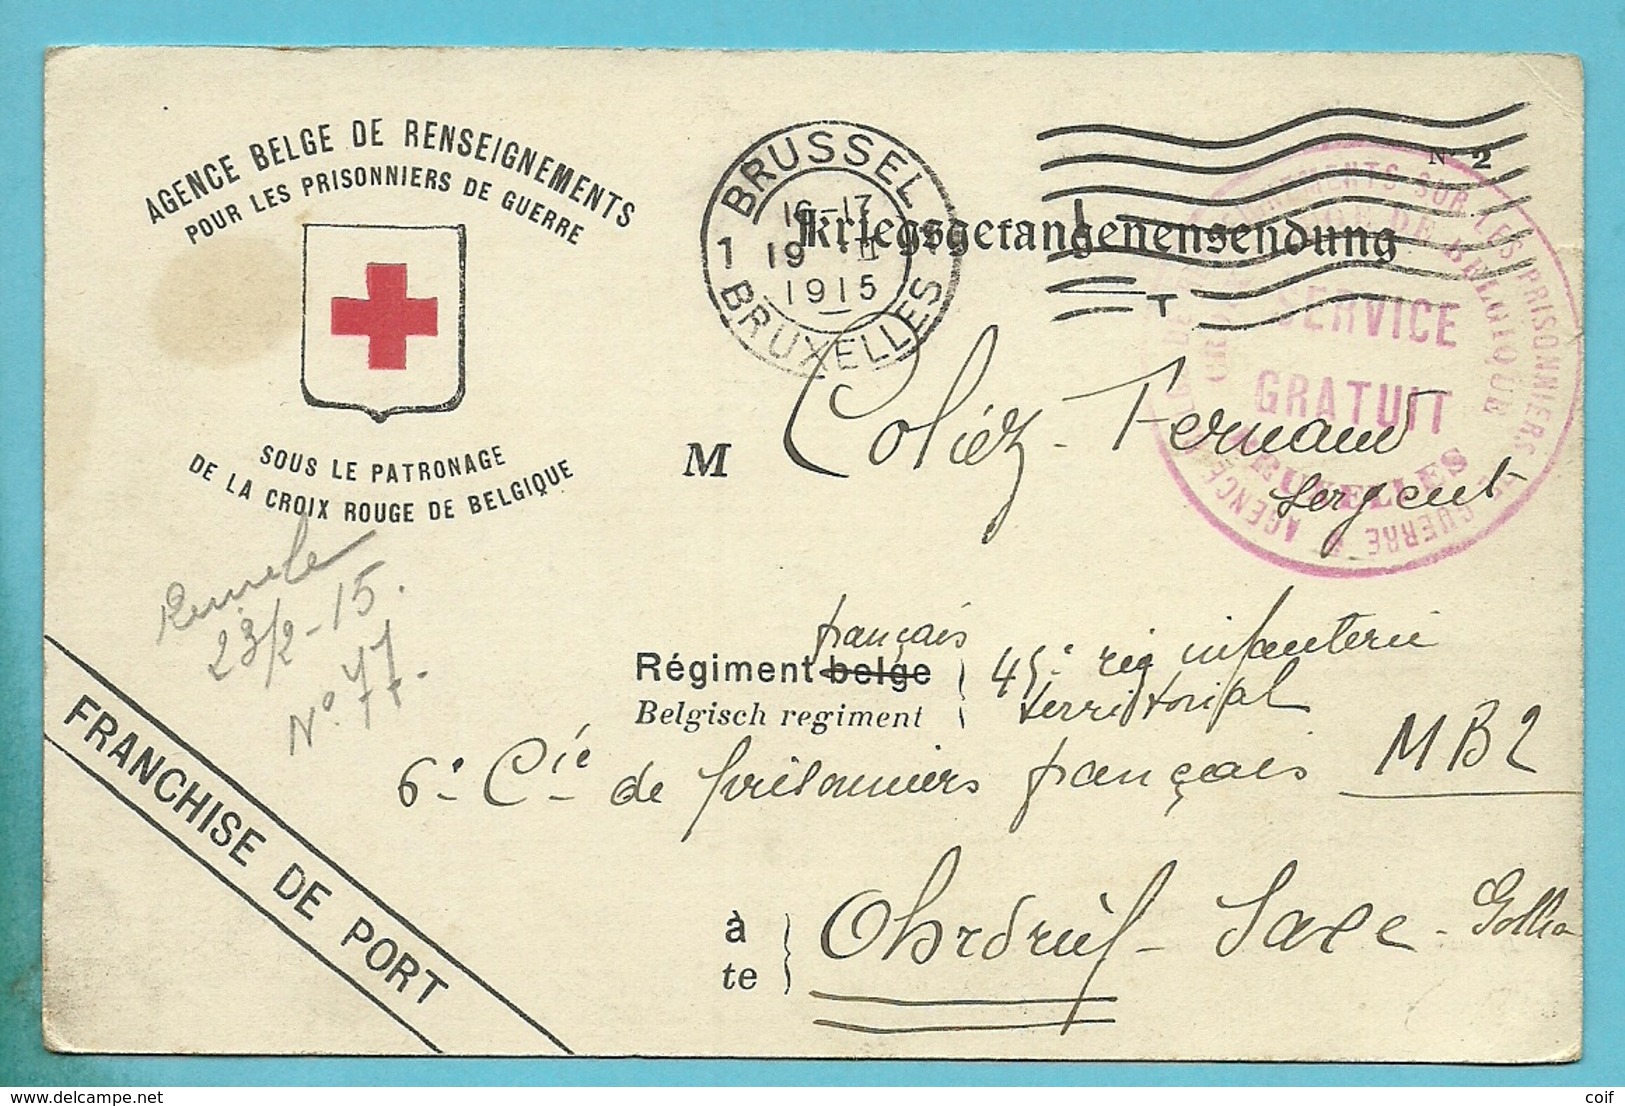 AGENCE BELGE DE RENSEIGNEMENTS
POUR LES PRISONNIERS DE GUERRE
SOUS LE PATRONAGE
DE LA CROIX ROUGE DE BELGIQUE
1 BRUSSEL 1
16-17
19 II
1915
BRUXELLES
N° 2
Kriegsgefangenensendung
AGENCE BELGE DE RENSEIGNEMENTS SUR LES PRISONNIERS DE GUERRE
CROIX ROUGE DE BELGIQUE
SERVICE
GRATUIT
BRUXELLES
M Coliez - Fernand
sergent
23/2-15.
N° 77.
français
Régiment belge 45e rég infanterie
Belgisch regiment territorial
6e Cie de prisonniers français MB2
à Ohrdruf - Saxe - Gotha
te
FRANCHISE DE PORT
delcampe.net
coif